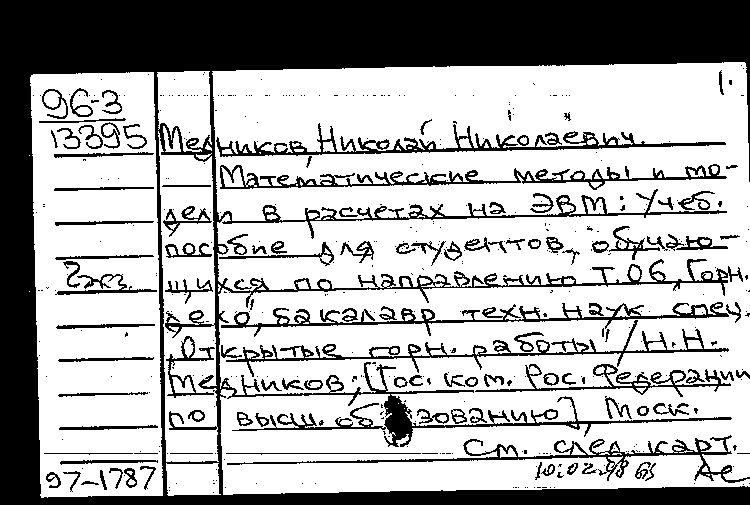 1.
96-3
13395 Медников, Николай Николаевич.
Математические методы и мо-
дели в расчетах на ЭВМ: Учеб.
пособие для студентов, обучаю-
2 экз. щихся по направлению Т.06 „Горн.
дело", бакалавр техн. наук спец.
„Открытые горн. работы" / Н.Н.
Медников; [Гос. ком. Рос. Федерации
по высш. об зованию], Моск.
См. след. карт.
97-1787 10.02.98